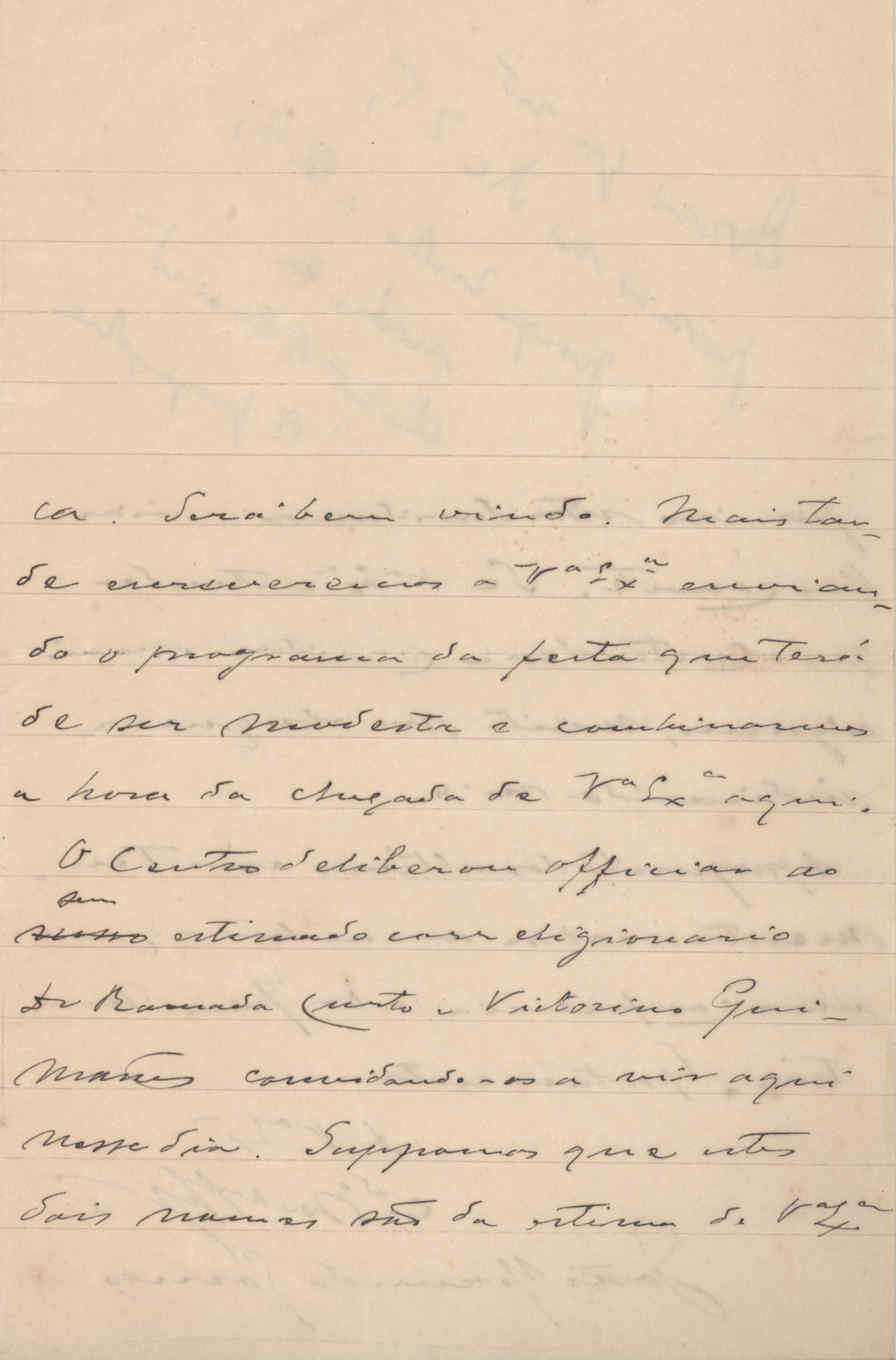 ca. Será bem vindo. Mais tar-
de escreveremos a Vª Exª envian-
do o programa da festa que terá
de ser modesta e combinarmos
a hora da chegada de Vª Exª aqui.
O Centro deliberou officiar ao
seu
nosso estimado correligionario
Dr Ramada Curto e Victorino Gui-
marães convidando-os a vir aqui
nesse dia. Suppomos que estes
dois nomes são da estima de Vª Exª